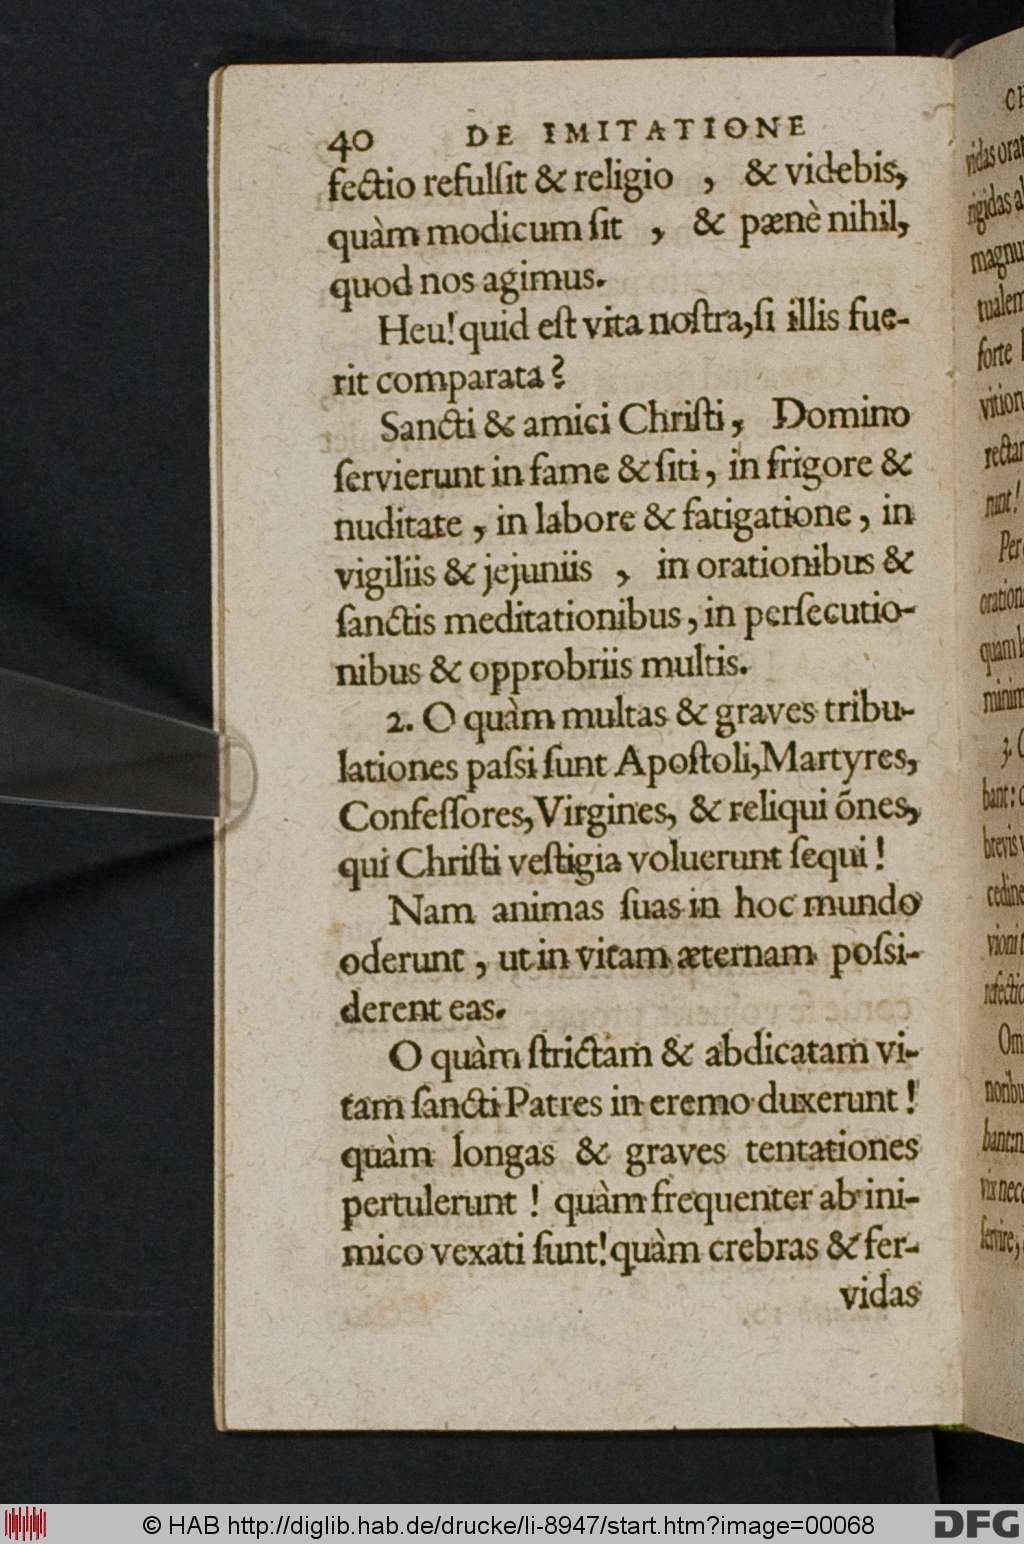 40 DE IMITATIONE
fectio refulſit & religio , & videbis,
quàm modicum ſit , & pænè nihil,
quod nos agimus.
Heu! quid eſt vita noſtra, ſi illis fue-
rit comparata?
Sancti & amici Chriſti, Domino
ſervierunt in fame & ſiti, in frigore &
nuditate, in labore & fatigatione, in
vigiliis & jejuniis , in orationibus &
ſanctis meditationibus, in perſecutio-
nibus & opprobriis multis.
2. O quàm multas & graves tribu-
lationes paſsi ſunt Apoſtoli, Martyres,
Confeſſores, Virgines, & reliqui õnes,
qui Chriſti veſtigia voluerunt ſequi!
Nam animas ſuas in hoc mundo
oderunt, ut in vitam æternam poſsi-
derent eas.
O quàm ſtrictam & abdicatam vi-
tam ſancti Patres in eremo duxerunt!
quàm longas & graves tentationes
pertulerunt! quàm frequenter ab ini-
mico vexati ſunt! quàm crebras & fer-
vidas
vidas
rigidas
forte
3.
brevis
vix
ſervire,
© HAB http://diglib.hab.de/drucke/li-8947/start.htm?image=00068
DFG